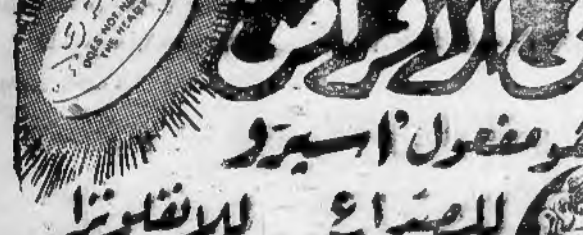 DOES NOT
THE HEART
الاقراص
مفعول اسبرو
للصداع للانفلونزا